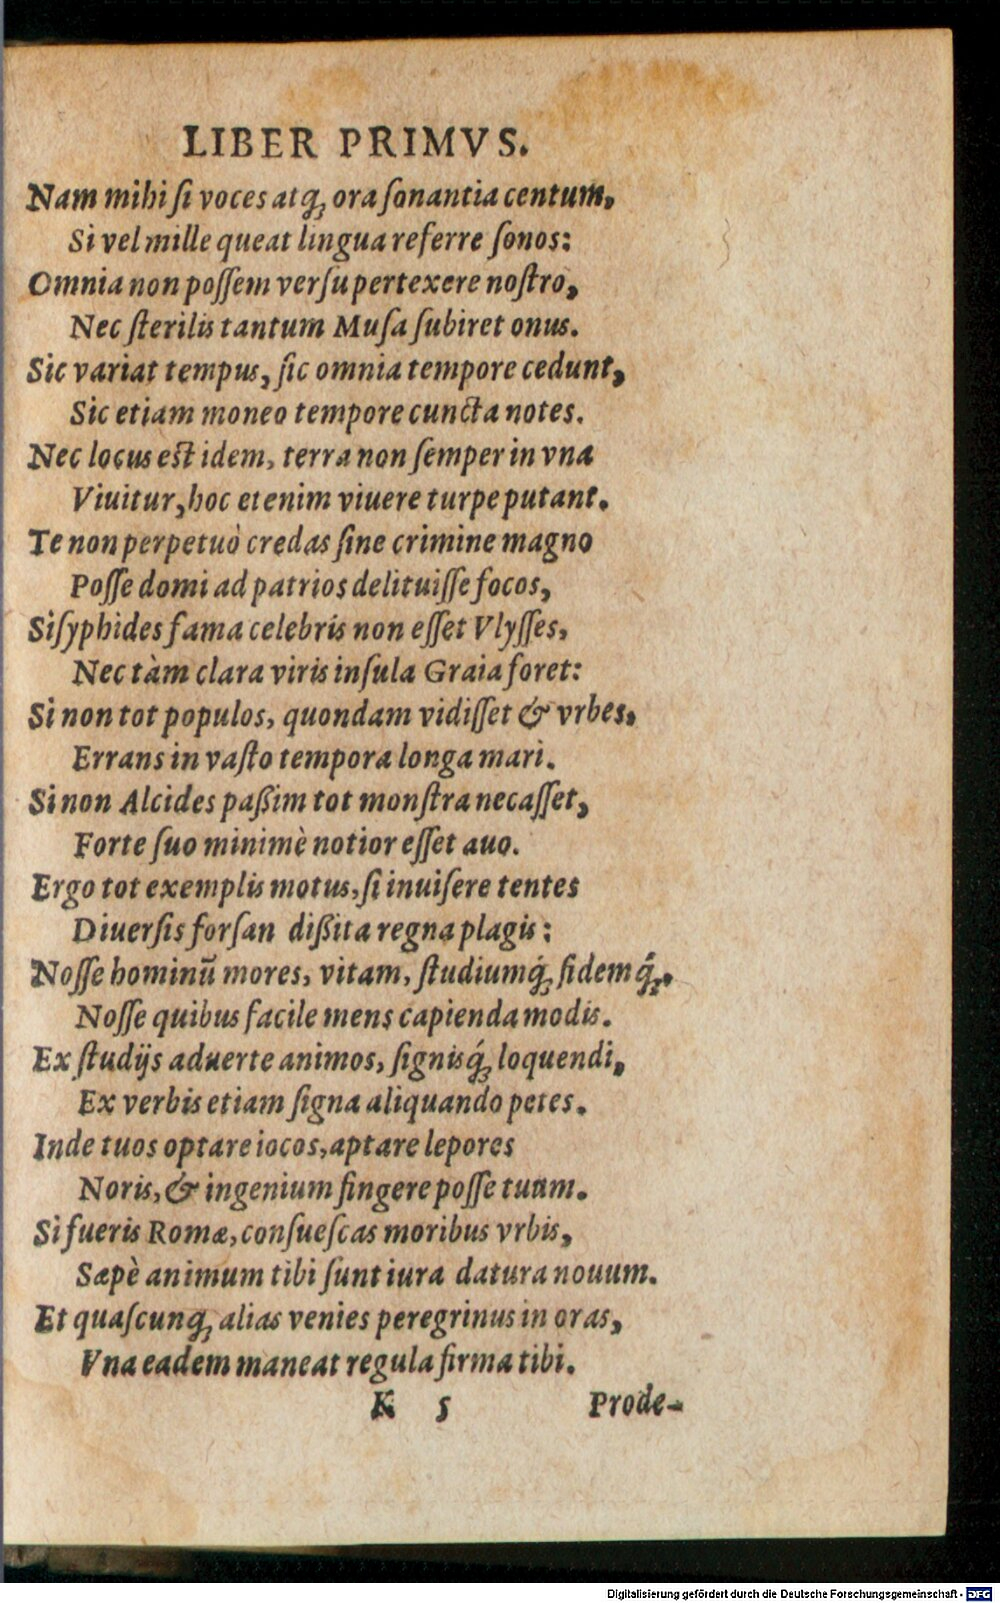 LIBER PRIMVS.
Nam mihi ſi voces atq́ꝫ ora ſonantia centum,
Si vel mille queat lingua referre ſonos:
Omnia non poſſem verſu pertexere noſtro,
Nec ſterilis tantum Muſa ſubiret onus.
Sic variat tempus, ſic omnia tempore cedunt,
Sic etiam moneo tempore cuncta notes.
Nec locus eſt idem, terra non ſemper in vna
Viuitur, hoc etenim viuere turpe putant.
Te non perpetuò credas ſine crimine magno
Poſſe domi ad patrios delituiſſe focos,
Siſyphides fama celebris non eſſet Vlyſſes,
Nec tàm clara viris inſula Graia foret:
Si non tot populos, quondam vidiſſet & vrbes,
Errans in vaſto tempora longa mari.
Si non Alcides paßim tot monſtra necaſſet,
Forte ſuo minimè notior eſſet auo.
Ergo tot exemplis motus, ſi inuiſere tentes
Diuerſis forſan dißita regna plagis:
Noſſe hominū mores, vitam, ſtudiumq́ꝫ fidemq́ꝫ,
Noſſe quibus facile mens capienda modis.
Ex ſtudijs aduerte animos, ſignisq́ꝫ loquendi,
Ex verbis etiam ſigna aliquando petes.
Inde tuos optare iocos, aptare lepores
Noris, & ingenium fingere poſſe tuum.
Si fueris Romæ, conſueſcas moribus vrbis,
Sæpè animum tibi ſunt iura datura nouum.
Et quaſcunqꝫ alias venies peregrinus in oras,
Vna eadem maneat regula firma tibi.
K 5 Prode-
Digitalisierung gefördert durch die Deutsche Forschungsgemeinschaft - DFG